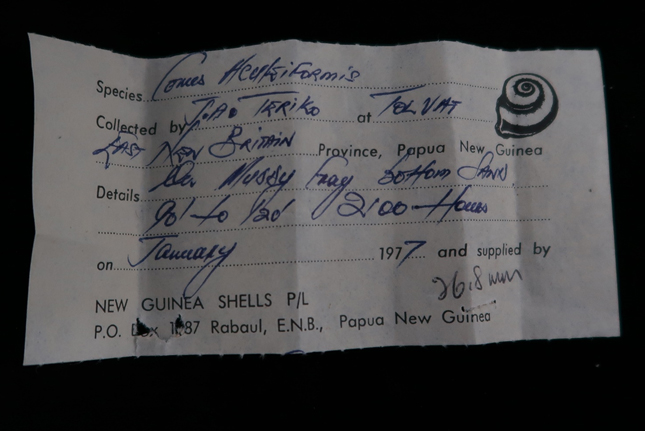 Species Conus Acutiformis
Collected by Jao TERIKO at TOLVAT
EAST NEW BRITAIN Province, Papua New Guinea
Details On Muddy bottom
90' to 120' 2100 Hours
on January 1977 and supplied by
26.8 mm
NEW GUINEA SHELLS P/L
P.O. Box 1187 Rabaul, E.N.B., Papua New Guinea